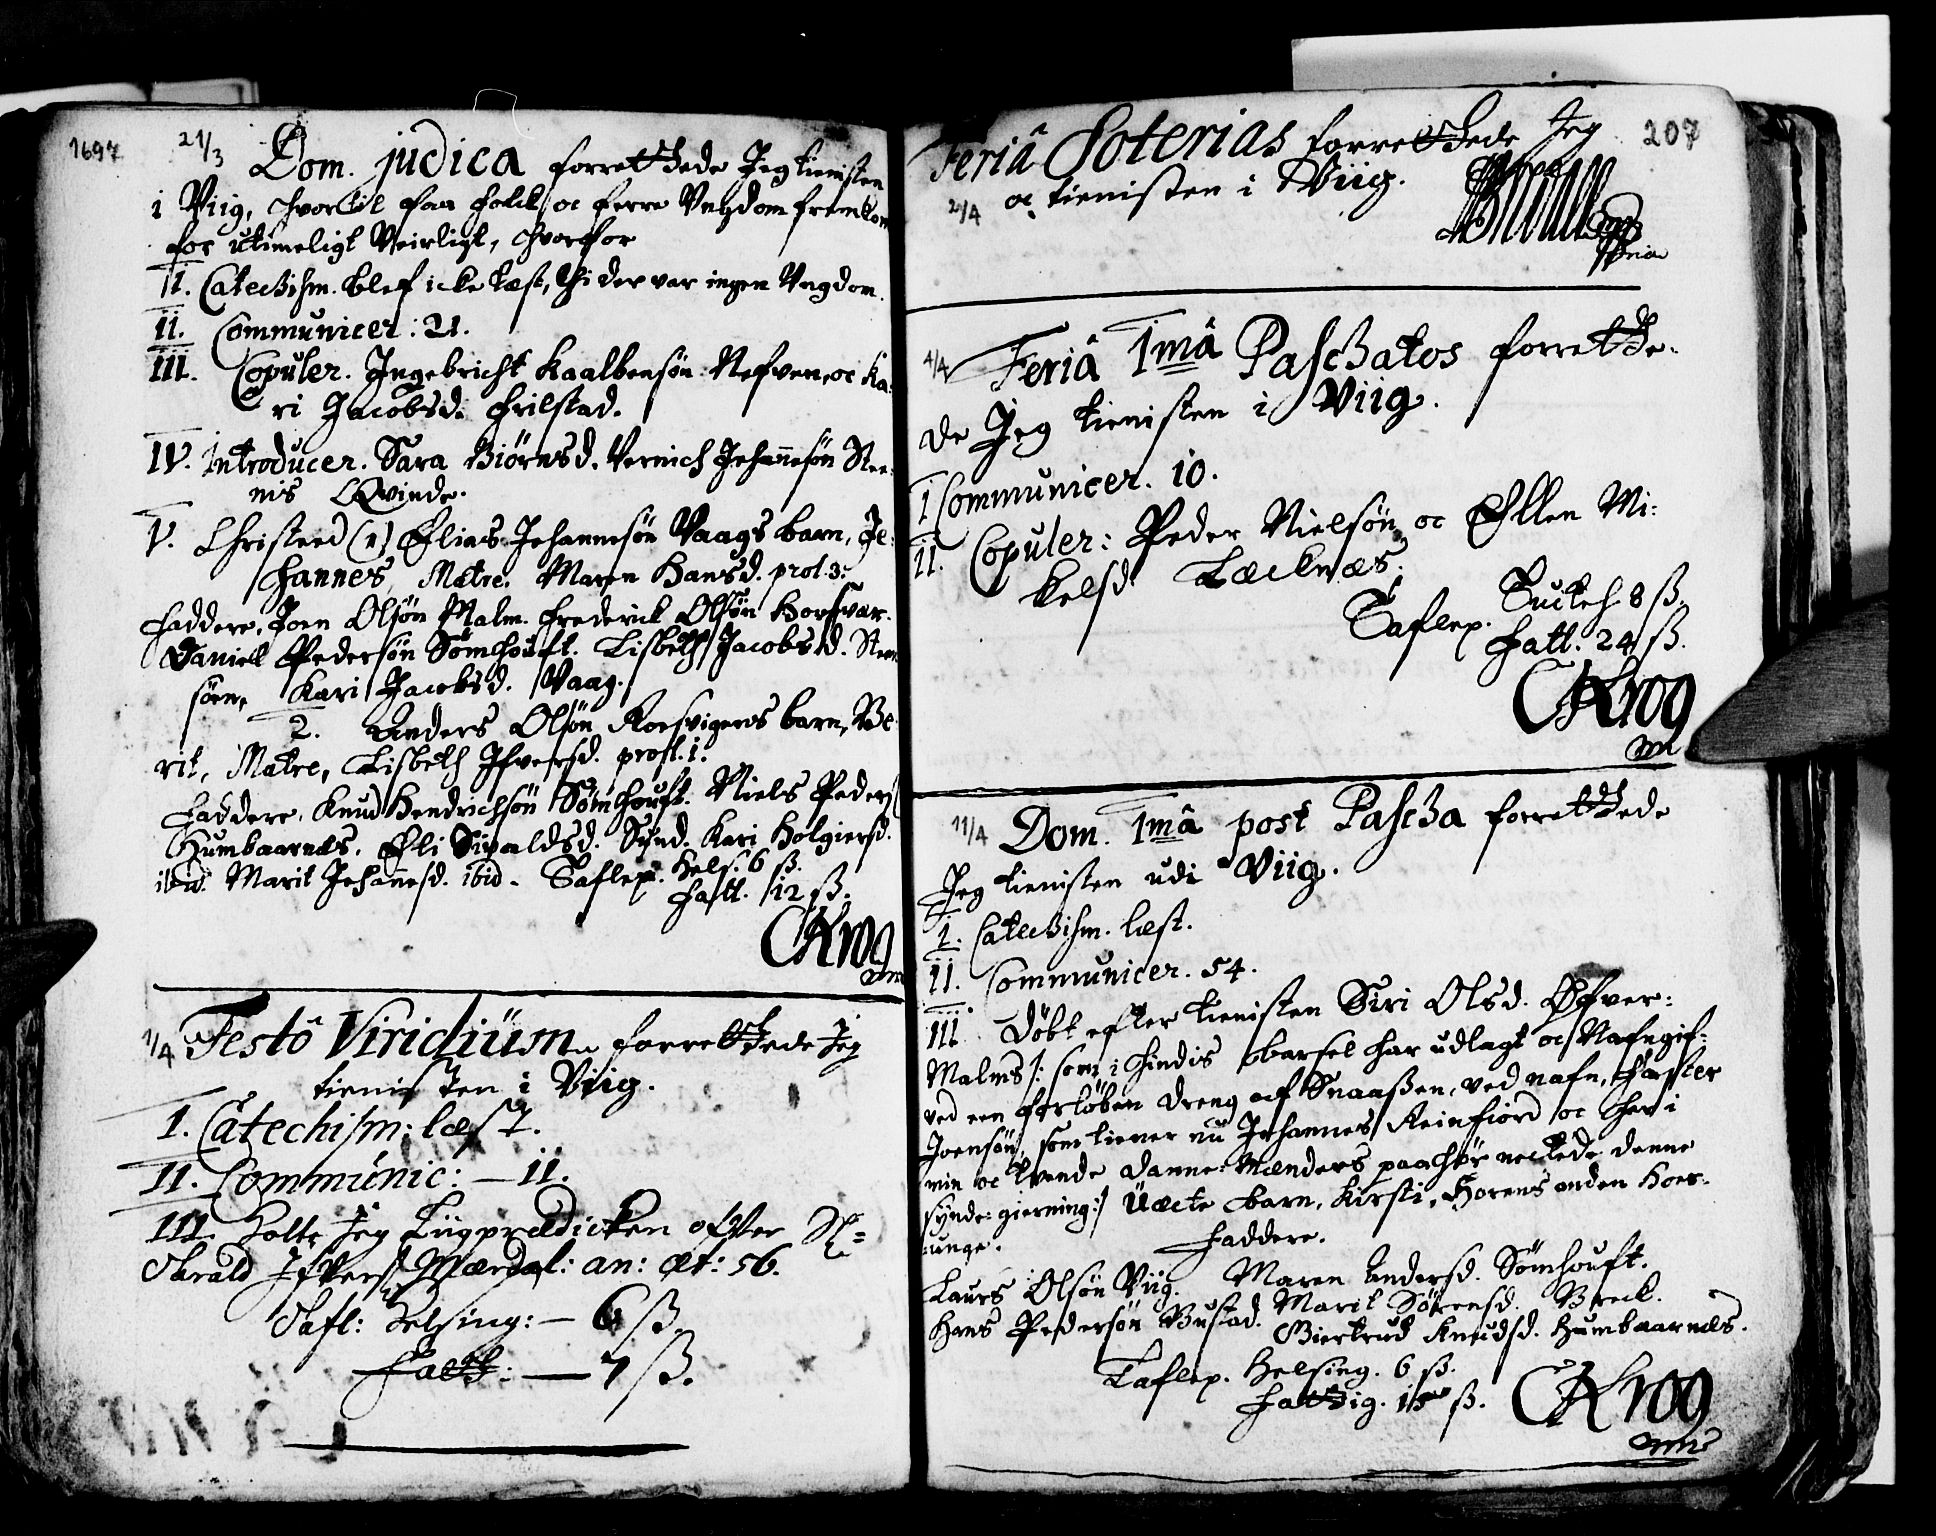 1697
21/3 Dom. judica forrettede Jeg tienisten
i Viig, hvortil faa folck oc ferre Ungdom fremkom
for utimeligt Veirligt, hvorfor
I. Catechism. blef icke læst, thi der var ingen Ungdom.
II. Communicer: 21.
III. Copuler. Ingebricht Kaalbensøn Nefven, oc Ka-
ri Jacobsd. Hilstad.
IV. Introducer. Sara Biørnsd. Vernich Johannesøn Stee-
nis Qvinde.
V. Christned (1) Elias Johannesøn Vaags barn, Jo-
hannes, Matre. Maren Hansd. prol. 3.
Faddere, Joen Olsøn Malm. Frederick Olsøn Horsvar.
Daniell Pedersøn Sømhouft. Lisbeth Jacobsd. Steen
søen, Kari Jacobsd. Vaag.
2. Anders Olsøn Korsvigens barn, Be-
rit, Matre, Lisbeth Ifversd. prol. 1.
Faddere, Knud Hendrichsøn Sømhouft. Niels Peders
Humbaarnæs. Eli Sivaldsd. Sund. Kari Holgiersd.
ibid. Marit Johannesd. ibid. Taflep. Hels. 6 ß.
Fatt. 12 ß.
CKrog
mm
1/4 Festô Viridiüm forrettede Jeg
tienisten i Viig.
I. Catechism: læst.
II. Communic: — 11.
III. Holte Jeg Liigprædicken ofver Sl:
Harald Ifvers. Mærdal: an: æt: 56.
Tafl: Helsing: — 6 ß.
Fatt: — 7 ß.
207
Feriâ Soterias forrettede Jeg
2/4 oc tienisten i Viig.
4/4 Feriâ 1mâ Paschatos forrette-
de Jeg tienisten i Viig.
I Communicer. 10.
II. Copuler: Peder Nielsøn oc Ellen Mi-
kelsd Læcknæs.
Taflep. Tuckth. 8 ß.
Fatt. 24 ß.
CKrog
mm
11/4 Dom. 1mâ post Pascha forrettede
Jeg tienisten udi Viig.
I. Catechism. læst.
II. Communicer. 54.
III. Døbt efter tienisten Siri Olsd. Øfver-
Malms /: som i hindis barsel har udlagt oc Nafngif-
ved een forløben dreng af Snaaßen, ved nafn,
Joensøn, som tiener nu Johannes Reinfiord oc her i
min oc tvende danne-Mænders paahør neckede denne
synde-gierning :/ Uæcte barn, Kirsti, Horens anden Hoer-
unge. Faddere.
Laurs Olsøn Viig. Maren Andersd. Sømhouft.
Hans Pedersøn Bustad. Marit Sørensd. Breck.
Giertrud Knudsd. Humbaarnæs.
Taflep. Helsing. 6 ß.
Fattig. 15 ß.
CKrog
mm